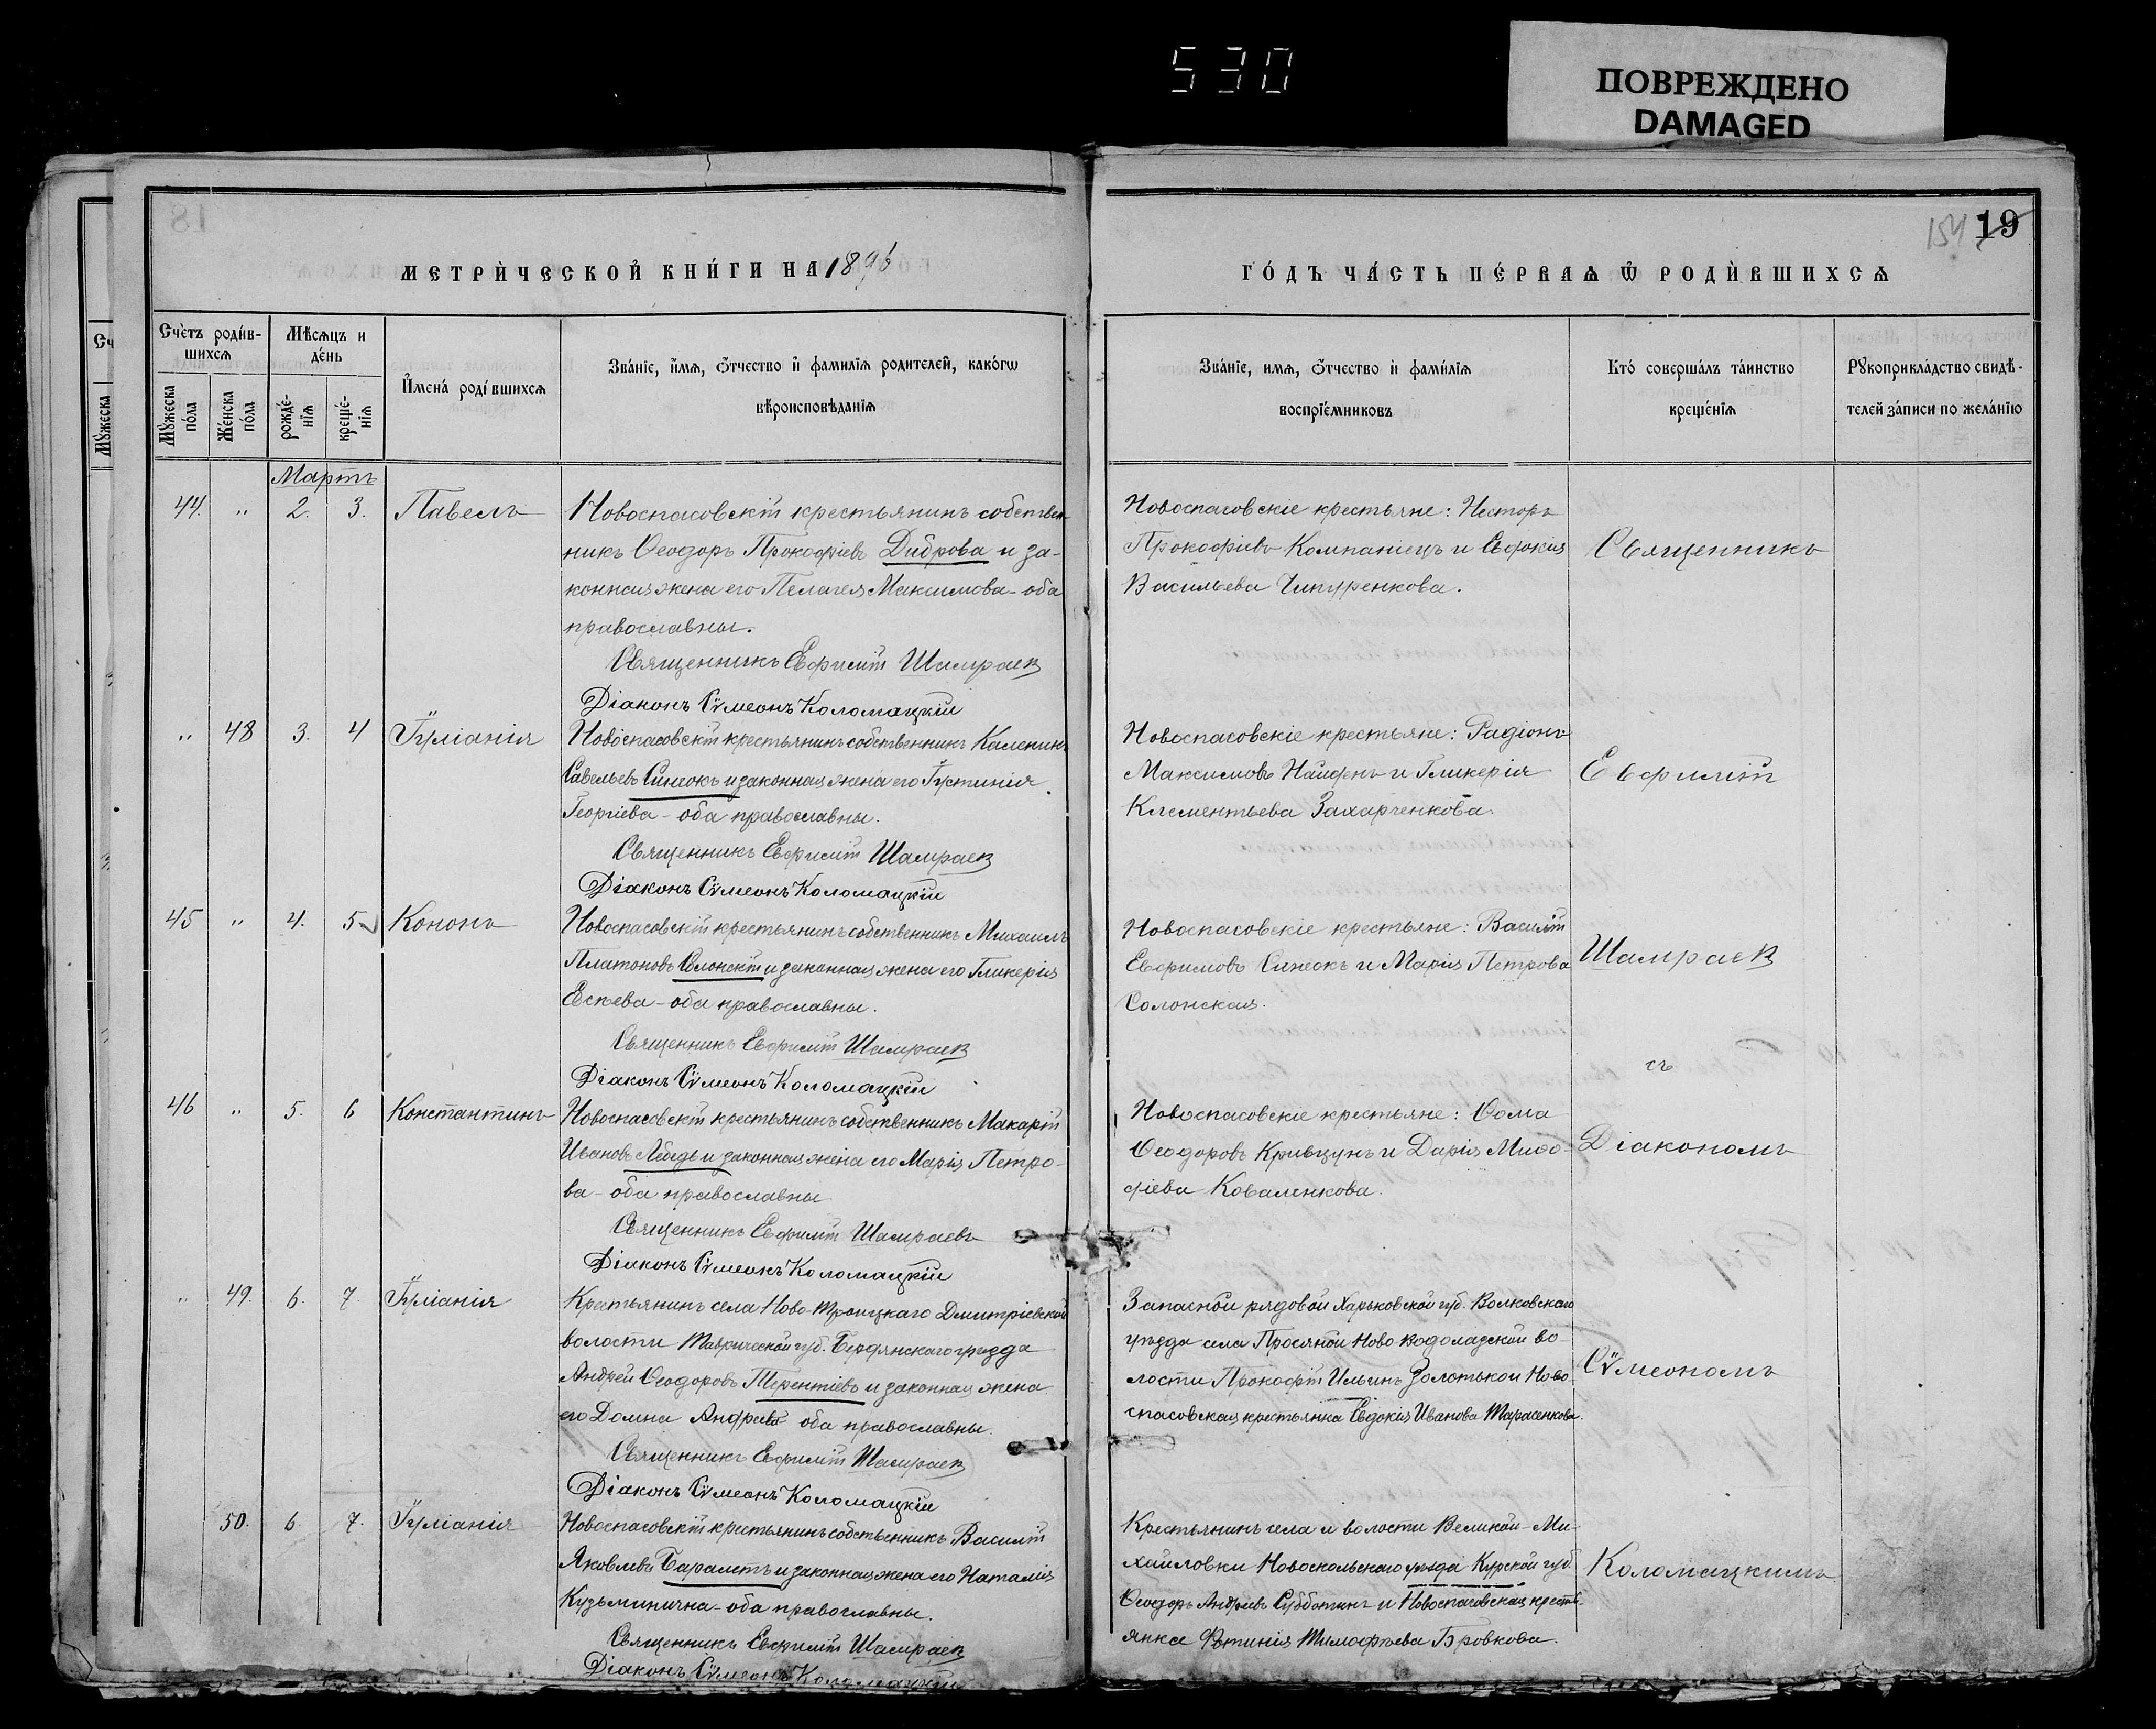 530
ПОВРЕЖДЕНО
DAMAGED
154 19
МЕТРИ́ЧЕСКОЙ КНИ́ГИ НА 1896
ГО́ДЪ ЧА́СТЬ ПЕ́РВАѦ Ѽ РОДИ́ВШИХСѦ
Счетъ роди́в-
шихсѧ
Мѣсѧцъ и
де́нь
Мꙋжеска
по́ла
Же́нска
по́ла
рожде́-
нїѧ
креще́-
нїѧ
И҆мена́ роді вшихсѧ
Зва́нїе, и҆мѧ, Ѻ҆тчество и҆ фамилїѧ родителей, како́гѡ
вѣроисповѣданїѧ
Зва́нїе, имѧ, Ѻ҆тчество и҆ фами́лїѧ
воспрїе́мниковъ
Кто́ соверша́лъ та́инство
креще́нїѧ
Рꙋкоприкла́дство свидѣ-
телей за́писи по жела́нїю
Мартъ
44. " 2. 3. Павелъ
Новоспасовскій крестьянинъ собствен-
никъ Ѳеодоръ Прокофіевъ Диброва и за-
конная жена его Пелагея Максимова - оба
православны.
Священникъ Евфимій Шамраевъ
Діаконъ Сѵмеонъ Коломацкій
Новоспасовскіе крестьяне: Несторъ
Прокофіевъ Компаніецъ и Евфокія
Васильева Чипуренкова.
" 48 3. 4 Іуліанія
Новоспасовскій крестьянинъ собственникъ Каленикъ
Савельевъ Синеокъ и законная жена его Іустинія
Георгіева - оба православны.
Священникъ Евфимій Шамраевъ
Діаконъ Сѵмеонъ Коломацкій
Новоспасовскіе крестьяне: Радіонъ
Максимовъ Найденъ и Гликерія
Клементьева Захарченкова.
45 " 4. 5 Кононъ
Новоспасовскій крестьянинъ собственникъ Михаилъ
Платоновъ Солонскій и законная жена его Гликерія
оба православны.
Священникъ Евфимій Шамраевъ
Діаконъ Сѵмеонъ Коломацкій
Новоспасовскіе крестьяне: Василій
Евфимовъ Синеокъ и Марія Петрова
Солонская.
46 " 5. 6 Константинъ
Новоспасовскій крестьянинъ собственникъ Макарій
Ивановъ Лебедь и законная жена его Марія Петро-
ва - оба православны
Священникъ Евфимій Шамраевъ
Діаконъ Сѵмеонъ Коломацкій
Новоспасовскіе крестьяне: Ѳома
Ѳеодоровъ Кривцунъ и Дарія Миѳо-
діева Коваленкова.
" 49. 6. 7. Іуліанія
Крестьянинъ села Ново-Троицкаго Дмитріевской
волости Таврической губ. Бердянскаго уѣзда
Андрей Ѳеодоровъ Терентіевъ и законная жена
его Домна Андреева оба православны.
Священникъ Евфимій Шамраевъ
Діаконъ Сѵмеонъ Коломацкій
Запасной рядовой Харьковской губ. Волковскаго
уѣзда села Просяной Ново Водолазской во-
лости Прокофій Ильинъ Золотько и Ново-
спасовская крестьянка Евдокія Иванова Тарасенкова.
50. 6. 7. Іуліанія
Новоспасовскій крестьянинъ собственникъ Василій
Яковлевъ Бараметъ и законная жена его Наталія
Кузьминична - оба православны.
Священникъ Евфимій Шамраевъ
Діаконъ Сѵмеонъ Коломацкій
Крестьянинъ села и волости Великой-Ми-
хайловки Новоскольскаго уѣзда Курской губ.
Ѳеодоръ Андреевъ Субботинъ и Новоспасовская кресть-
янка Фотинія Тимофѣева Бровкова.
Священникъ
Евфимій
Шамраевъ
съ
Діакономъ
Сѵмеономъ
Коломацкимъ